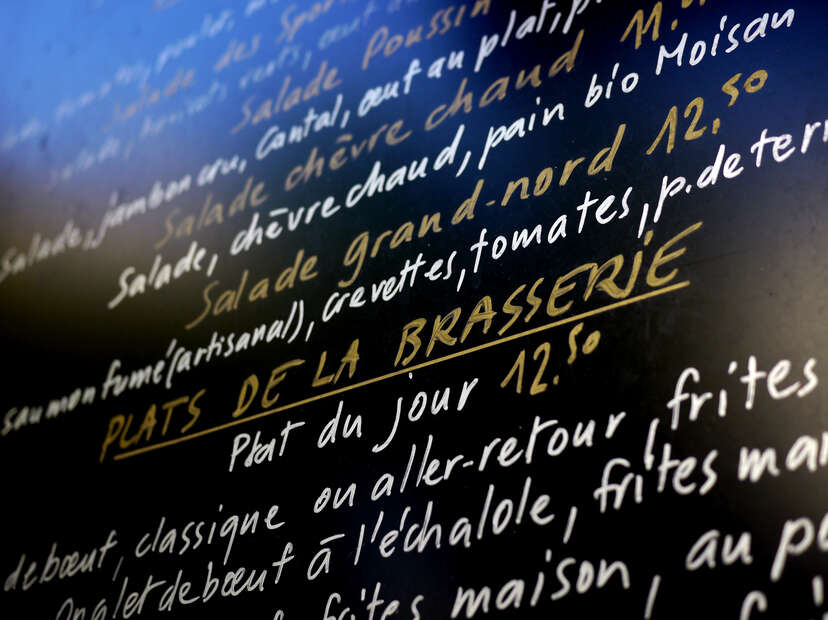 Salade des Spor
Salade Poussin
Salade, jambon cru, Cantal, œuf au plat, p
Salade chèvre chaud 11.
Salade, chèvre chaud, pain bio Moisan
Salade grand-nord 12,50
saumon fumé (artisanal), crevettes, tomates, p. de terr
PLATS DE LA BRASSERIE
Plat du jour 12.50
de bœuf, classique ou aller-retour, frites
Onglet de bœuf à l'échalole, frites mai
frites maison, au po